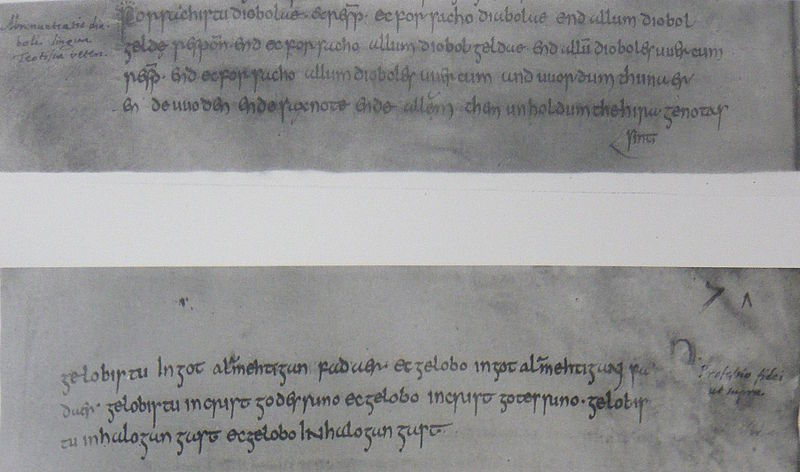 Abrenuntiatio dia-
boli lingua
Teotisca veter.
Forsachistu diobolae. & resp̄. ec forsacho diabolae end allum diobol
gelde respon̄. end ec forsacho allum diobol geldae end allū dioboles uuercum
resp̄. end ec forsacho allum dioboles uuercum and uuordum thunaer
ende uuoden ende saxnote ende allēm them unholdum the hira genotas
sint
gelobistu in got alamehtigan fadaer. ec gelobo in got alamehtigan fa
daer gelobistu in crist godes suno ec gelobo in crist gotes suno. gelobis
tu in halogan gast ec gelobo in halogan gast.
Professio fidei
ut supra